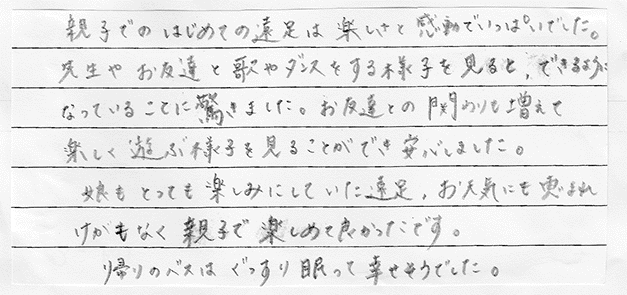 親子でのはじめての遠足は楽しさと感動でいっぱいでした。
先生やお友達と歌やダンスをする様子を見ると、できるように
なっていることに驚きました。お友達との関わりも増えて
楽しく遊ぶ様子を見ることができ安心しました。
娘もとっても楽しみにしていた遠足、お天気にも恵まれ
けがもなく親子で楽しめて良かったです。
帰りのバスはぐっすり眠って幸せそうでした。